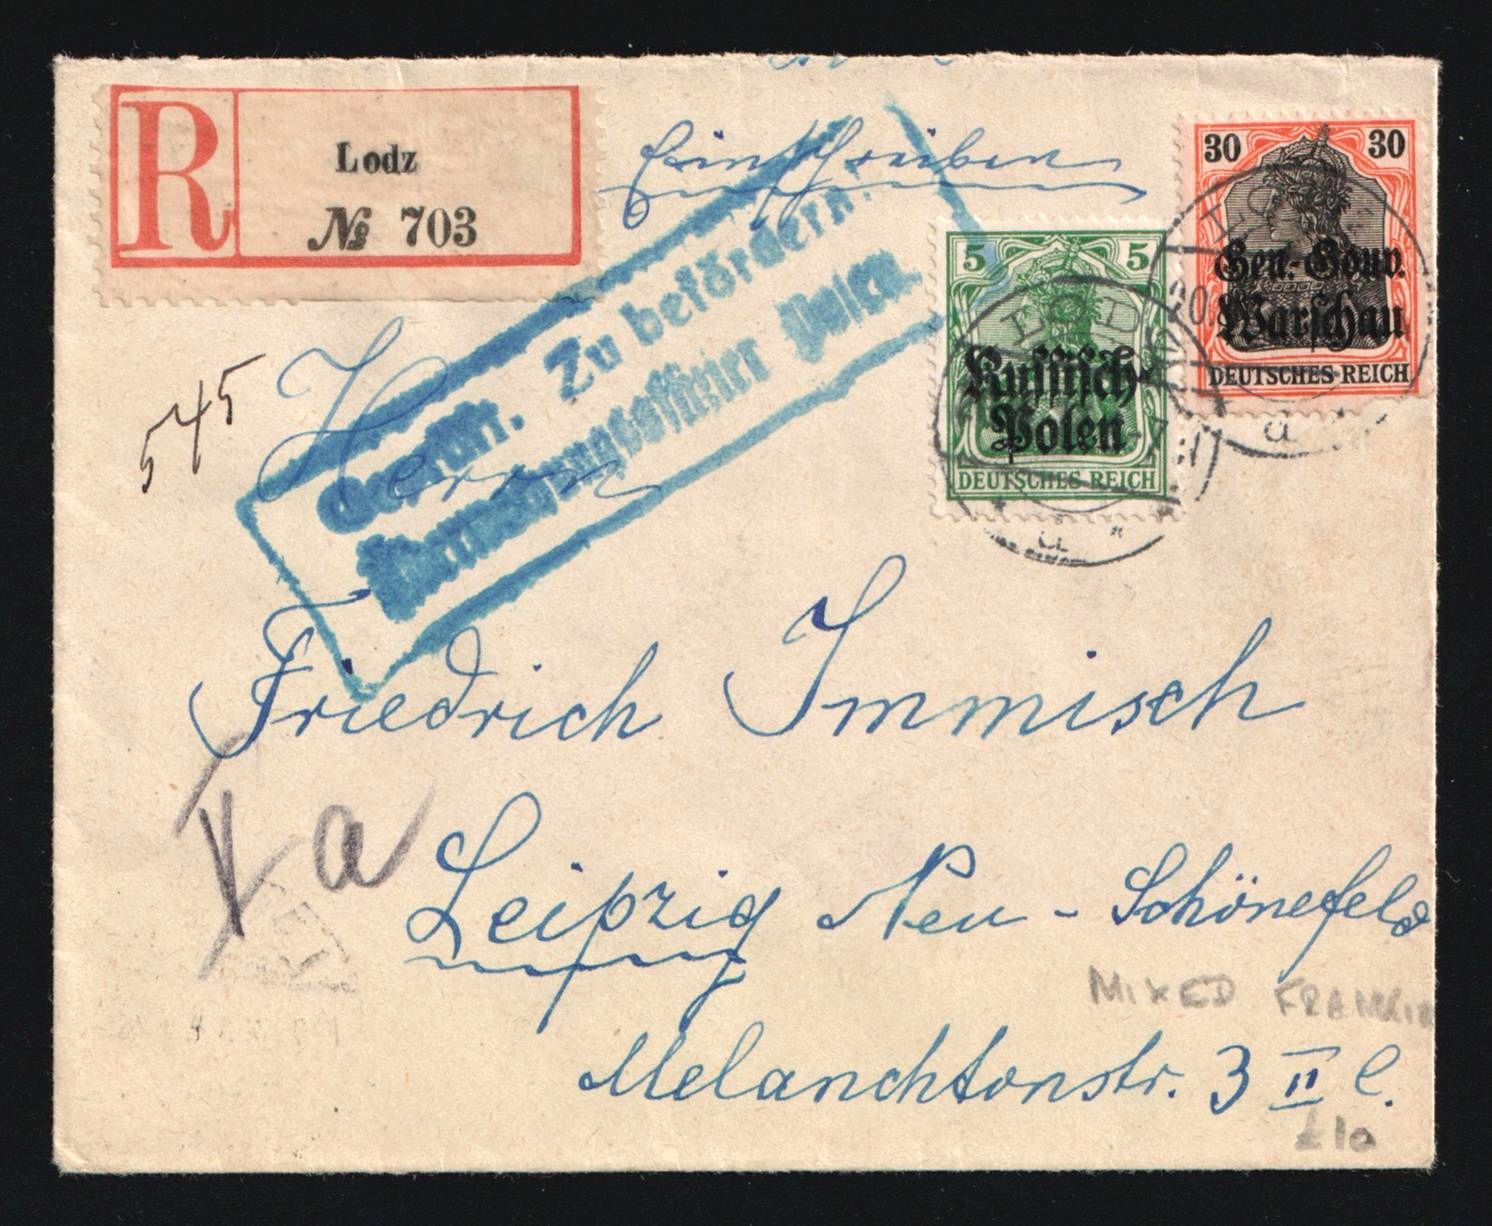 R
Lodz
№ 703
Einschreiben
30 30
Gen.-Gouv.
Warschau
DEUTSCHES REICH
5 5
Russisch-
Polen
DEUTSCHES REICH
LODZ
a
Geprüft. Zu befördern.
Überwachungsoffizier Polen.
545
Herrn
Friedrich Immisch
a
Leipzig Neu-Schönefeld
MIXED FRANKIN
Melanchtonstr. 3 II l.
£10